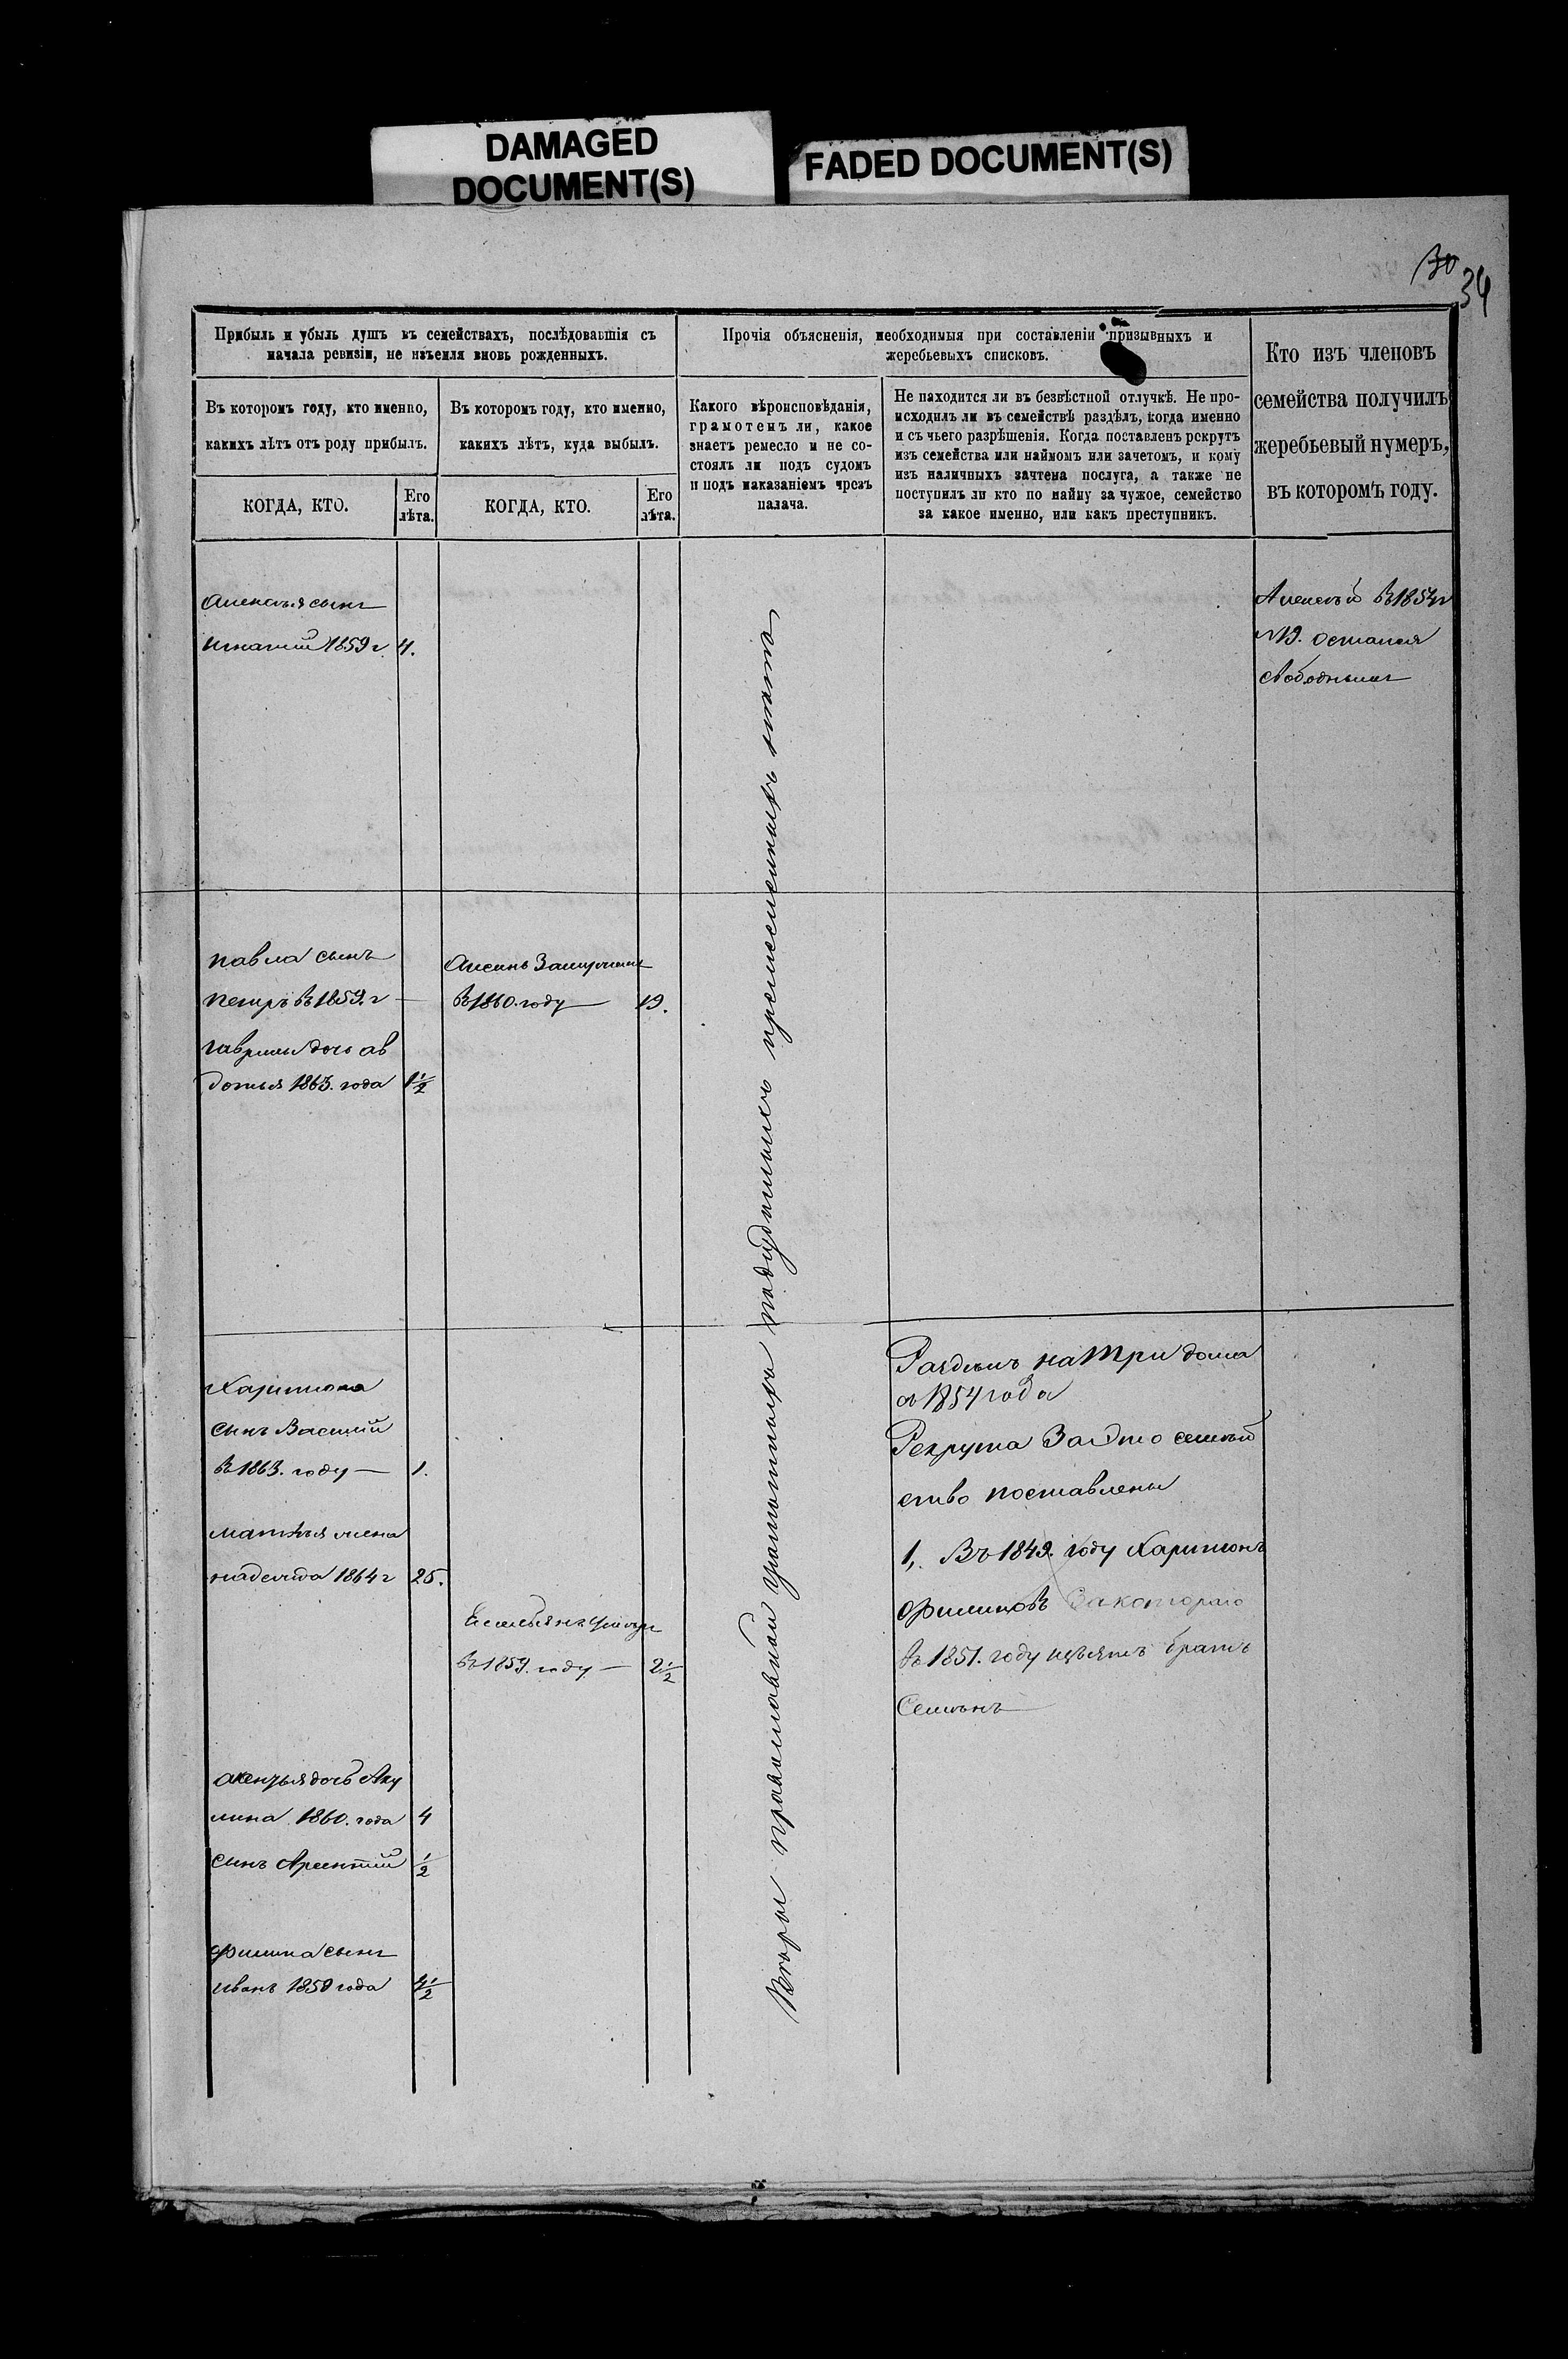 DAMAGED
DOCUMENT(S)
FADED DOCUMENT(S)
30
34
Прибыль и убыль душъ въ семействахъ, послѣдовавшія съ
начала ревизіи, не изъемля вновь рожденныхъ.
Въ которомъ году, кто именно,
какихъ лѣтъ отъ роду прибылъ.
КОГДА, КТО.
Его
лѣта.
Въ которомъ году, кто именно,
какихъ лѣтъ, куда выбылъ.
КОГДА, КТО.
Его
лѣта.
Прочія объясненія, необходимыя при составленіи призывныхъ и
жеребьевыхъ списковъ.
Какого вѣроисповѣданія,
грамотенъ ли, какое
знаетъ ремесло и не со-
стоялъ ли подъ судомъ
и подъ наказаніемъ чрезъ
палача.
Не находится ли въ безвѣстной отлучкѣ. Не про-
исходилъ ли въ семействѣ раздѣлъ, когда именно
и съ чьего разрѣшенія. Когда поставленъ рекрутъ
изъ семейства или наймомъ или зачетомъ, и кому
изъ наличныхъ зачтена послуга, а также не
поступилъ ли кто по найму за чужое, семейство
за какое именно, или какъ преступникъ.
Кто изъ членовъ
семейства получилъ
жеребьевый нумеръ,
въ которомъ году.
Алексѣя сынъ
Игнатий 1859 г 4.
Алексѣй въ 1854 г
№ 19. остался
свободнымъ
павла сынъ
петръ въ 1859. г —
гаврилы дочь ав
дотья 1863. года 1½
въ 1860. году — 19.
Вѣры православной
Харитона
сынъ Василий
въ 1863. году — 1.
матвѣя жена
надежда 1864 г 25.
въ 1859. году — 2½
дочь Аку
лина 1860. года 4
сынъ Арсентий ½
филипа сынъ
иванъ 1859 года 4½
Раздѣлъ на три дома
съ 1854 года
Рекрута За Это семей
ство поставлены
1, Въ 1849. году Харитонъ
Филиповъ За котораго
въ 1851. году братъ
Семенъ